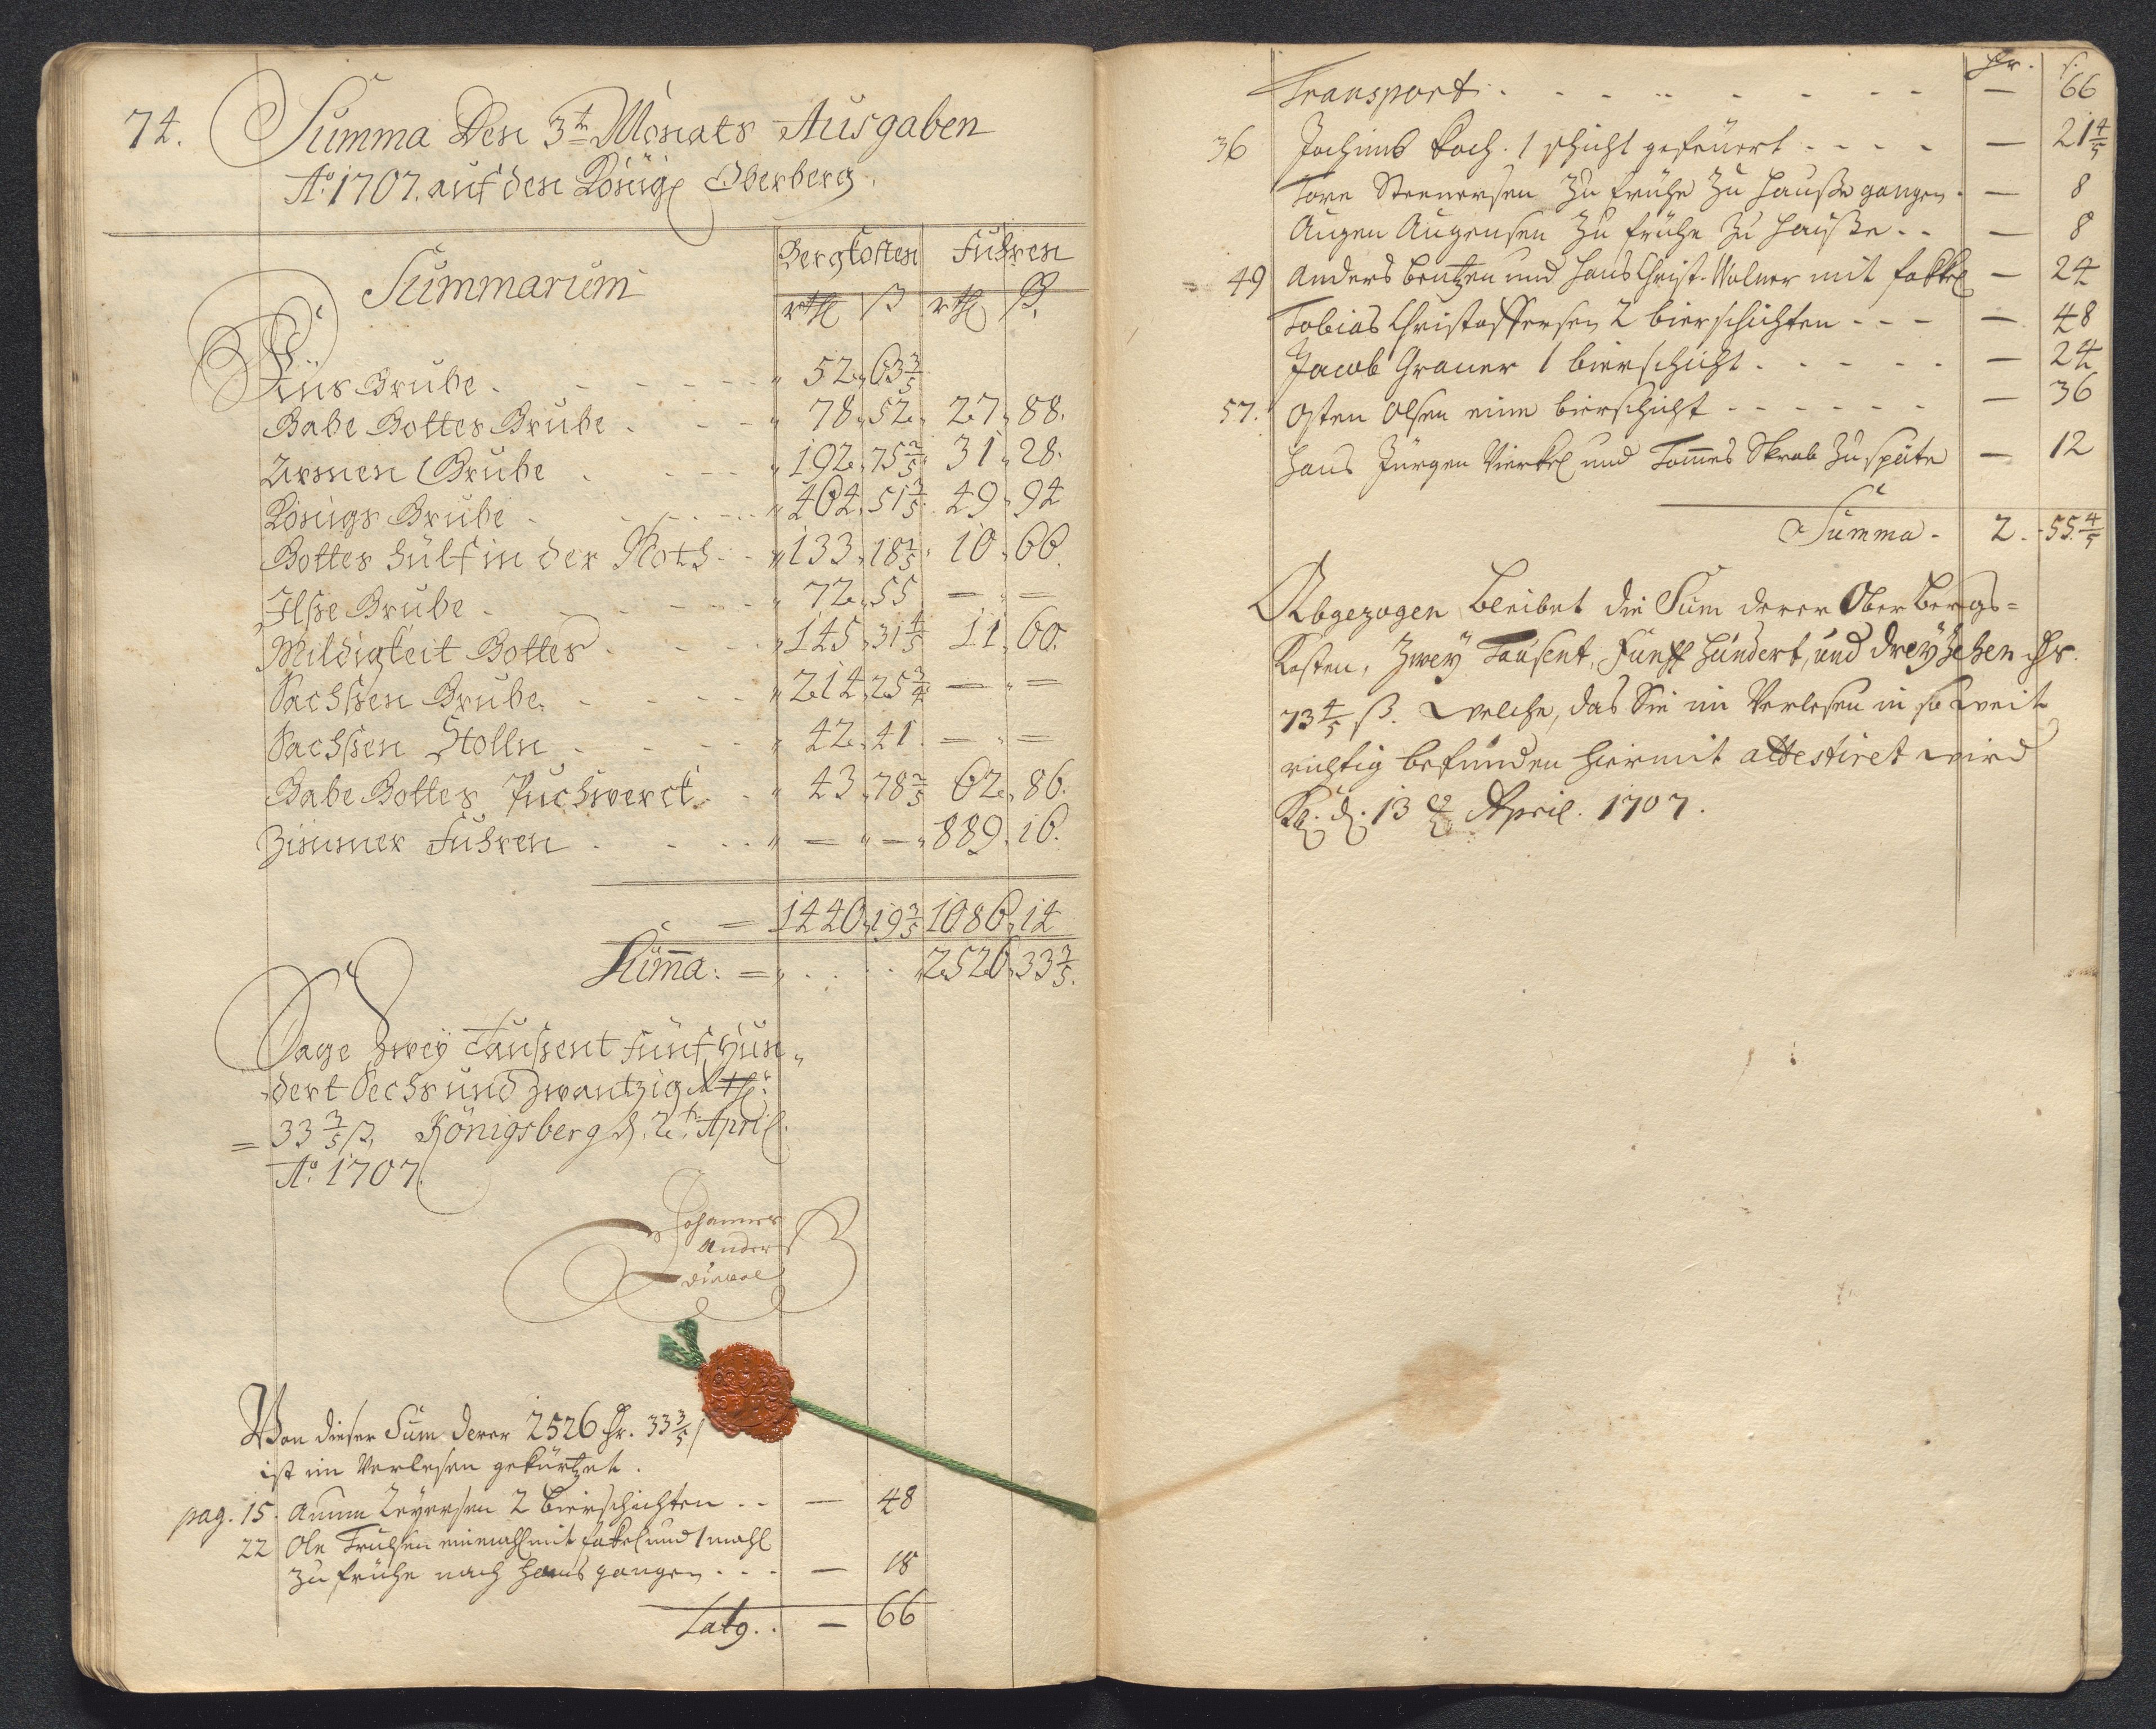 74. Summa Den 3ten Monats Ausgaben
Ao. 1707. auf den Königl Oberberg.
Summarum
Bergkosten Fuhren
rthl ß rthl ß.
Grube " 52 " 63 3/5
Gabe Gottes Grube " 78 " 52 " 27 " 88.
Armen Grube " 192 " 75 2/5 31 " 28.
Königs Grube " 464 " 51 3/5 49 " 94
Gottes Hülf in der Noth " 133 " 18 2/5 10 " 66.
Ilse Grube " 72 " 55 — " —
Mildigkeit Gottes " 145 " 31 4/5 11 " 60.
Sachsen Grube " 214 " 25 — " —
Sachsen Stolln " 42 " 41 — " —
Gabe Gottes Puchwerck " 43 " 78 2/5 62 " 86.
Zimmer Fuhren " — " — " 889 " 16.
= 1440 " 19 3/5 1086 " 14
Suma: = " 2526 " 33 3/5.
Sage Zwey Tausent Fünf Hun„
„dert Sechs und Zwantzig Rthl:
= 33 3/5 ß, Königsberg d. 2t. April.
Ao. 1707.
Johannes
Anders
Von dieser Sum derer 2526 Dr. 33 3/5 ß
ist im Verlesen gekürtzet.
pag. 15. 2 Bierschichten - - — 48
22 Ole einmahl mit und 1 mahl
zu frühe nach Haus gangen - - - — 18
Latg. . — 66
Dr. ß.
Transport - - - - — 66
36 Jochims Koch. 1 schicht gefeüert - - - - — 21 4/5
Tore Steenersen Zu frühe Zu Hausse gangen - — 8
Augen Augensen Zu frühe Zu Hausse - - — 8
49 Anders Bentzen und Hans Christ. Wolner mit — 24
Tobias Christoffersen 2 bierschichten - - - — 48
Jacob Graner 1 bierschicht - - - — 24
57. Osten Olsen eine bierschicht - - - - — 36
Hans Jürgen und Tomes Zu späte — 12
Summa - 2. - 55 4/5
Abgezogen bleibet die Sum derer Ober Bergs=
Kosten, Zwey Tausent, Fünff Hundert, und dreyzehen Dr.
73 4/5 ß. welche, das Sie im Verlesen in so weit
richtig befunden hiermit attestiret wird
Kb. d. 13 April. 1707.